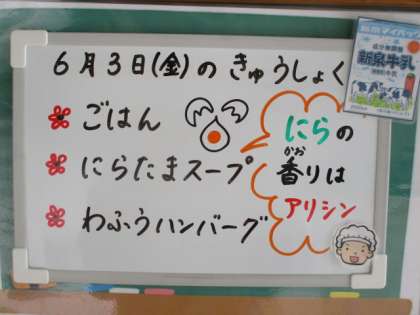 6月3日(金)のきゅうしょく
ごはん
にらたまスープ
わふうハンバーグ
にらの
かお
香りは
アリシン
新泉牛乳